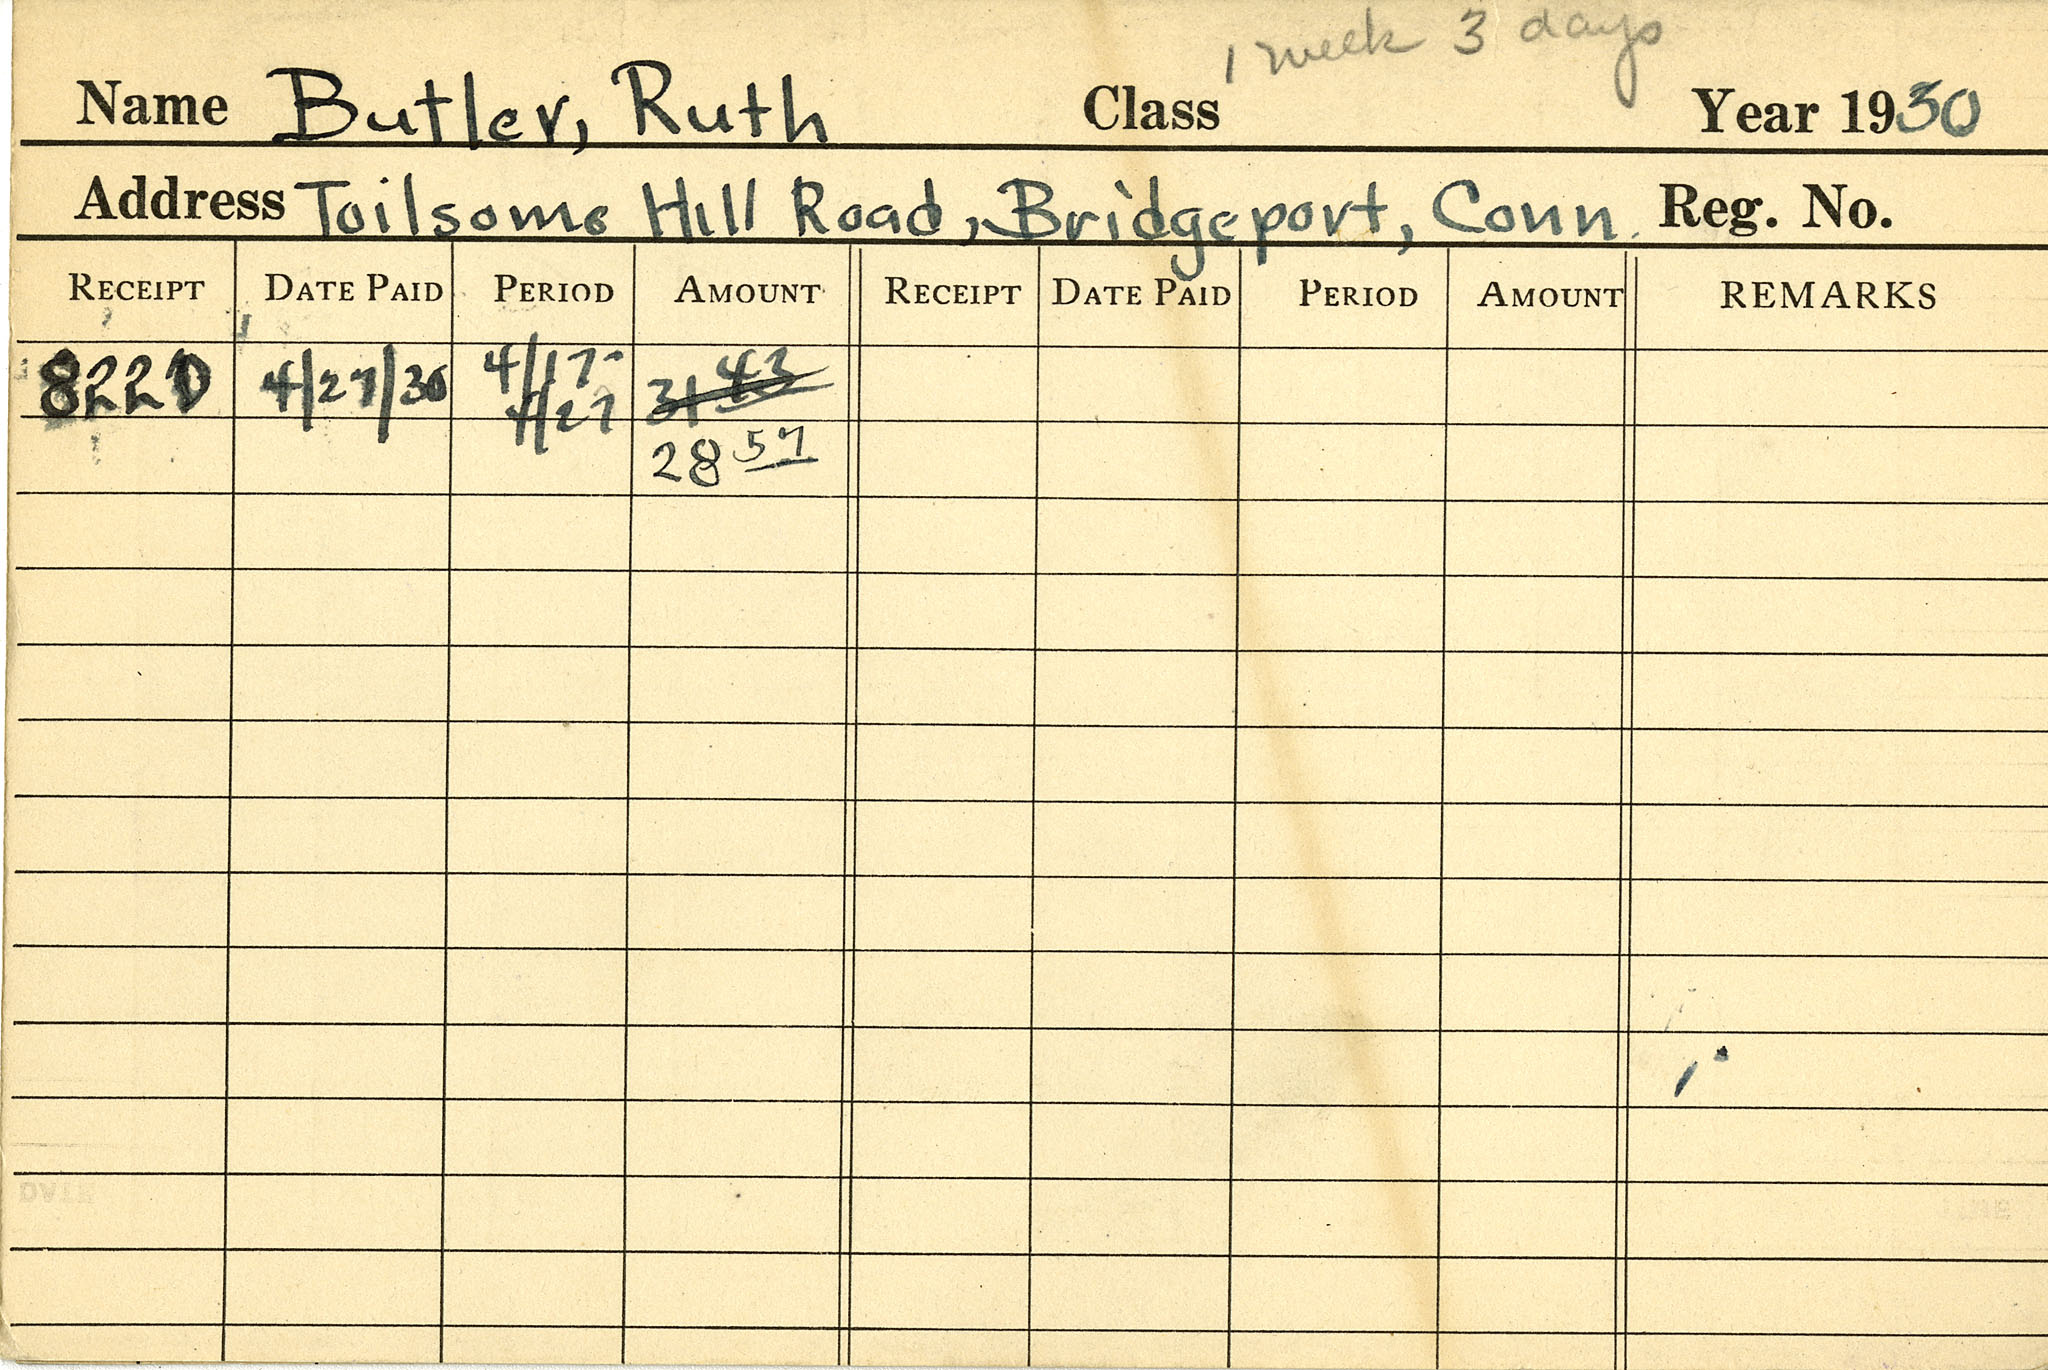 1 week 3 days
Name Butler, Ruth Class Year 1930
Address Toilsome Hill Road, Bridgeport, Conn. Reg. No.
RECEIPT DATE PAID PERIOD AMOUNT RECEIPT DATE PAID PERIOD AMOUNT REMARKS
4/27/30 4/17- 31 43
4/27
28 57